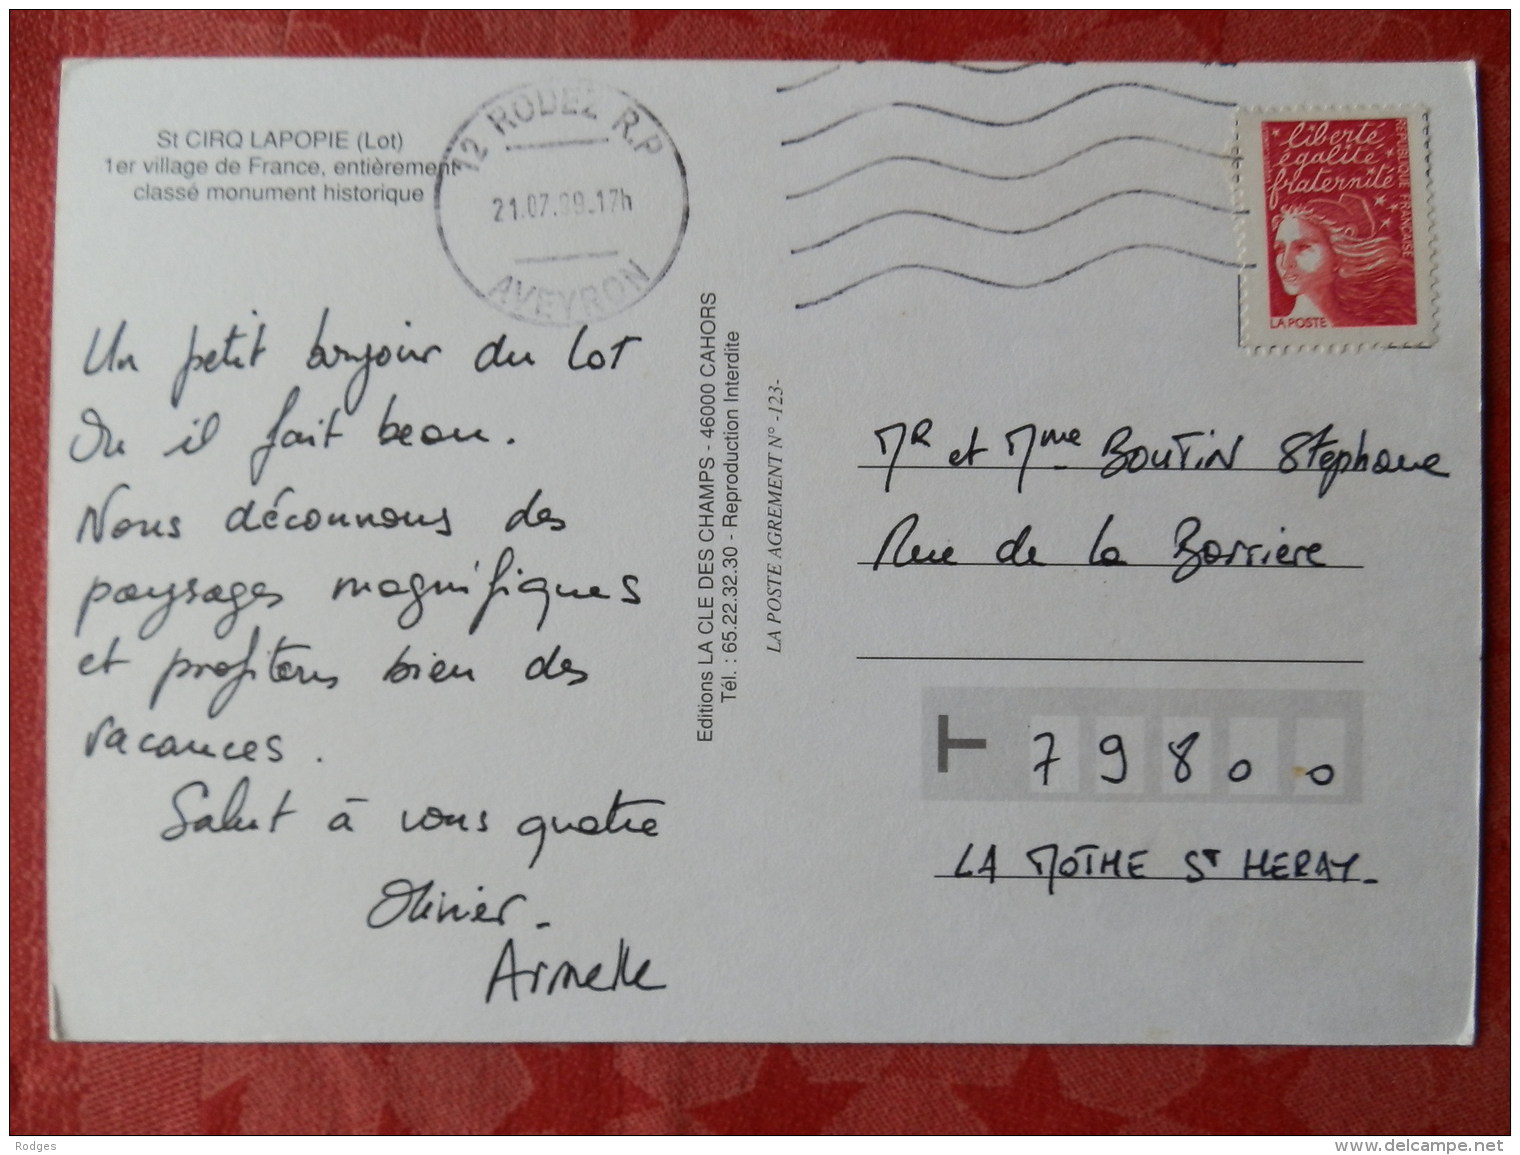 St CIRQ LAPOPIE (Lot)
1er village de France, entièrement
classé monument historique
12 RODEZ R.P
21.07.99.17h
AVEYRON
liberté
égalité
fraternité
REPUBLIQUE FRANÇAISE
LA POSTE
Un petit bonjour du Lot
Ou il fait beau.
Nous découvrons des
paysages magnifiques
et profitons bien des
vacances.
Salut à vous quatre
Olivier.
Armelle
Editions LA CLE DES CHAMPS - 46000 CAHORS
Tél. : 65.22.32.30 - Reproduction Interdite
LA POSTE AGREMENT N° -123-
MR et Mme BOUTIN Stephane
Rue de la Barriere
79800
LA MOTHE ST HERAY-
Rodges
www.delcampe.net